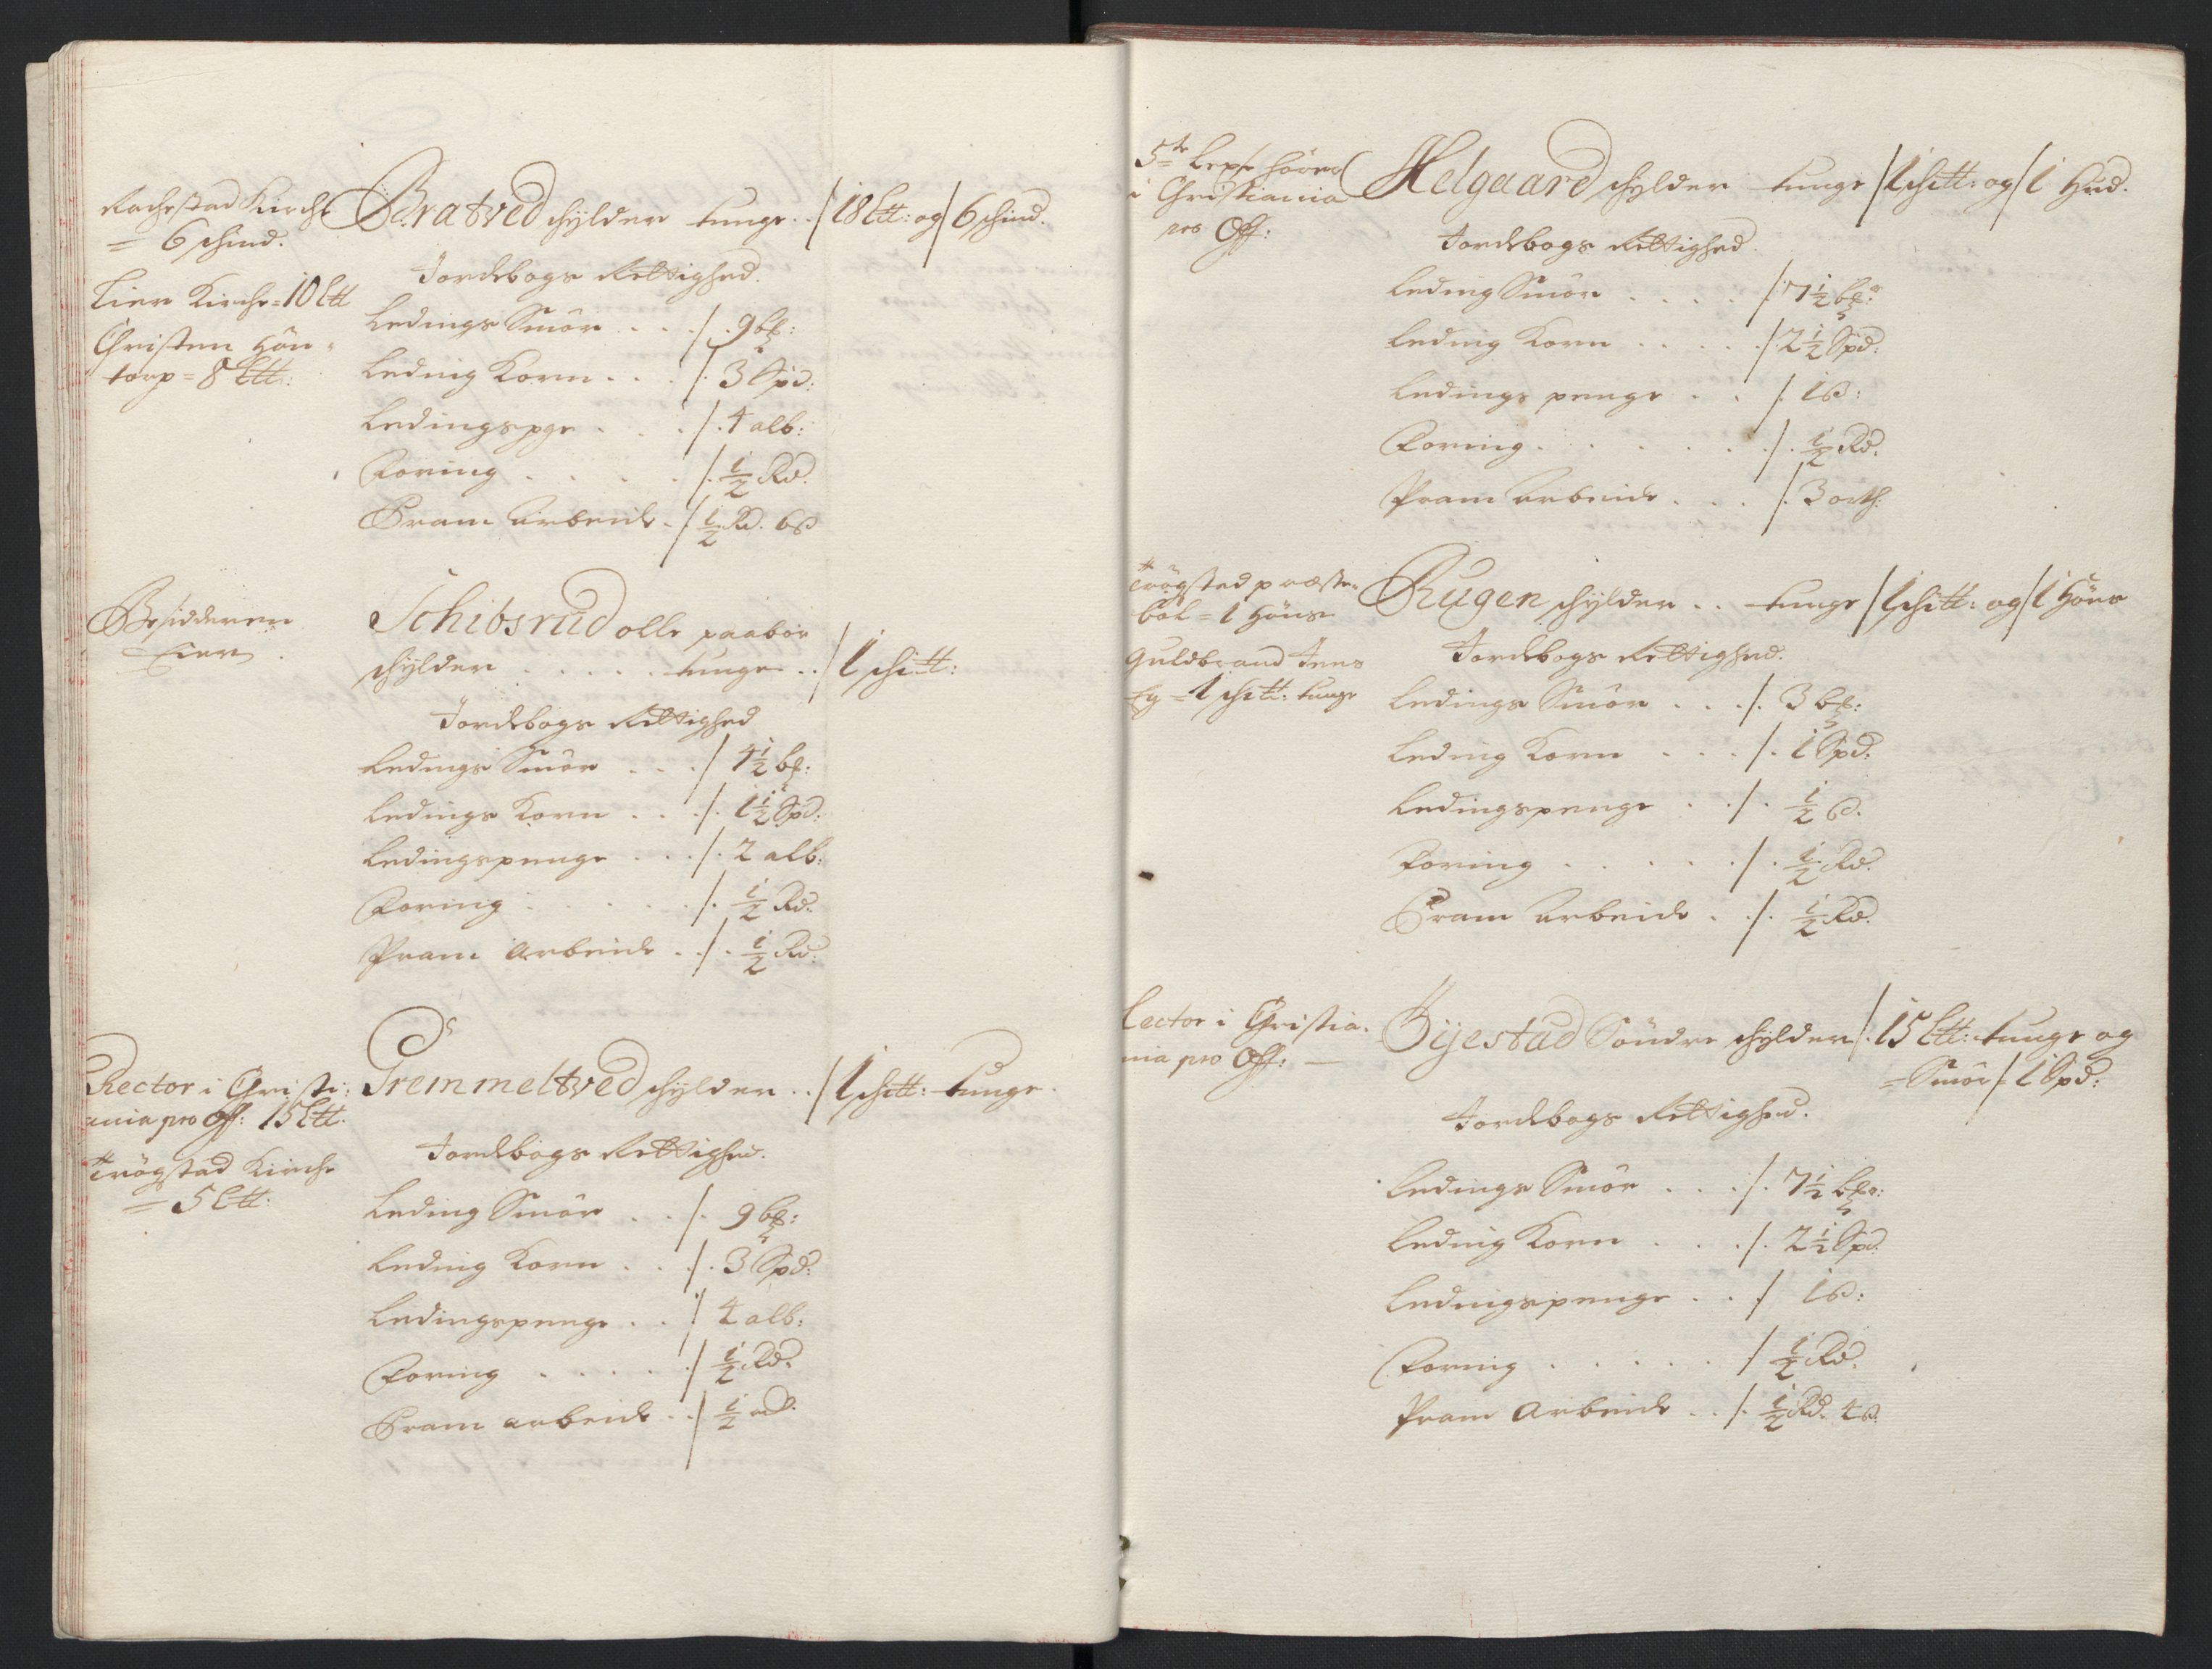 Rachestad Kirche
= 6 schind.
Lier Kirche = 10 Ltt
Christen Høn-
torp = 8 Ltt:
Bratved schylder tunge . . /18 Ltt: og / 6 schind.
Jordebogs Rettighed.
Ledings Smör . . . /. 9 bl:
Leding Korn . . . /. 3 Spd:
Ledingspge . . . /. 4 alb:
Foring . . . . . /. ½ Rd.
Fram Arbeide . / ½ Rd. 6 ß
Besidderen
Eier.
Schibsrud olle paaboe
schylder . . . . . tunge . . / 1 schtt:
Jordebogs Rettighed
Ledings Smör . . . / 4½ bl:
Ledings Korn . . . /. 1½ Spd:
Ledingspenge . . . /. 2 alb:
Foring . . . . . /. ½ Rd.
Pram Arbeide . . /. ½ Rd.
Rector i Christi-
ania pro Off: 15 Ltt.
Trögstad Kirche
= 5 Ltt.
Gremmeltved schylder . . / 1 schtt: tunge.
Jordebogs Rettighed.
Leding Smör . . . /. 9 bl:
Leding Korn . . . /. 3 Spd:
Ledingspenge . . / 4 alb:
Foring . . . . . / ½ Rd.
Fram arbeide . . / ½ rd.
5te Lexe hörer
i Christiania
pro Off:
Helgaard schylder tunge / 1 schtt: og / 1 Hud.
Jordebogs Rettighed.
Leding Smör . . . . /. 7½ bl:
Leding Korn . . . . /. 2½ Spd:
Ledings penge . . /. 1 ß:
Foring . . . . . . /. ½ Rd.
Pram Arbeide . . . /. 3 orth:
Trögstad præste-
bol = 1 Höns
Guldbrand Jens
Eg = 1 schtt: tunge
Rugen schylder . . tunge / 1 schtt: og / 1 Höns
Jordebogs Rettighed.
Ledings Smör . . . /. 3 bl:
Leding Korn . . . /. 1 Spd:
Ledingspenge . . /. ½ ß.
Foring . . . . . /. ½ Rd.
Fram Arbeide . . /. ½ Rd.
Lector i Christia-
nia pro Off: —
Bijestad Söndre schylder /. 15 Ltt: tunge og
= Smör / 1 Spd:
Jordebogs Rettighed.
Ledings Smör . . . /. 7½ bl:
Leding Korn . . . /. 2½ Spd.
Ledingspenge . . / 1 ß:
Foring . . . . . / ½ Rd.
Pram Arbeide . . /. ½ Rd. 4 ß.